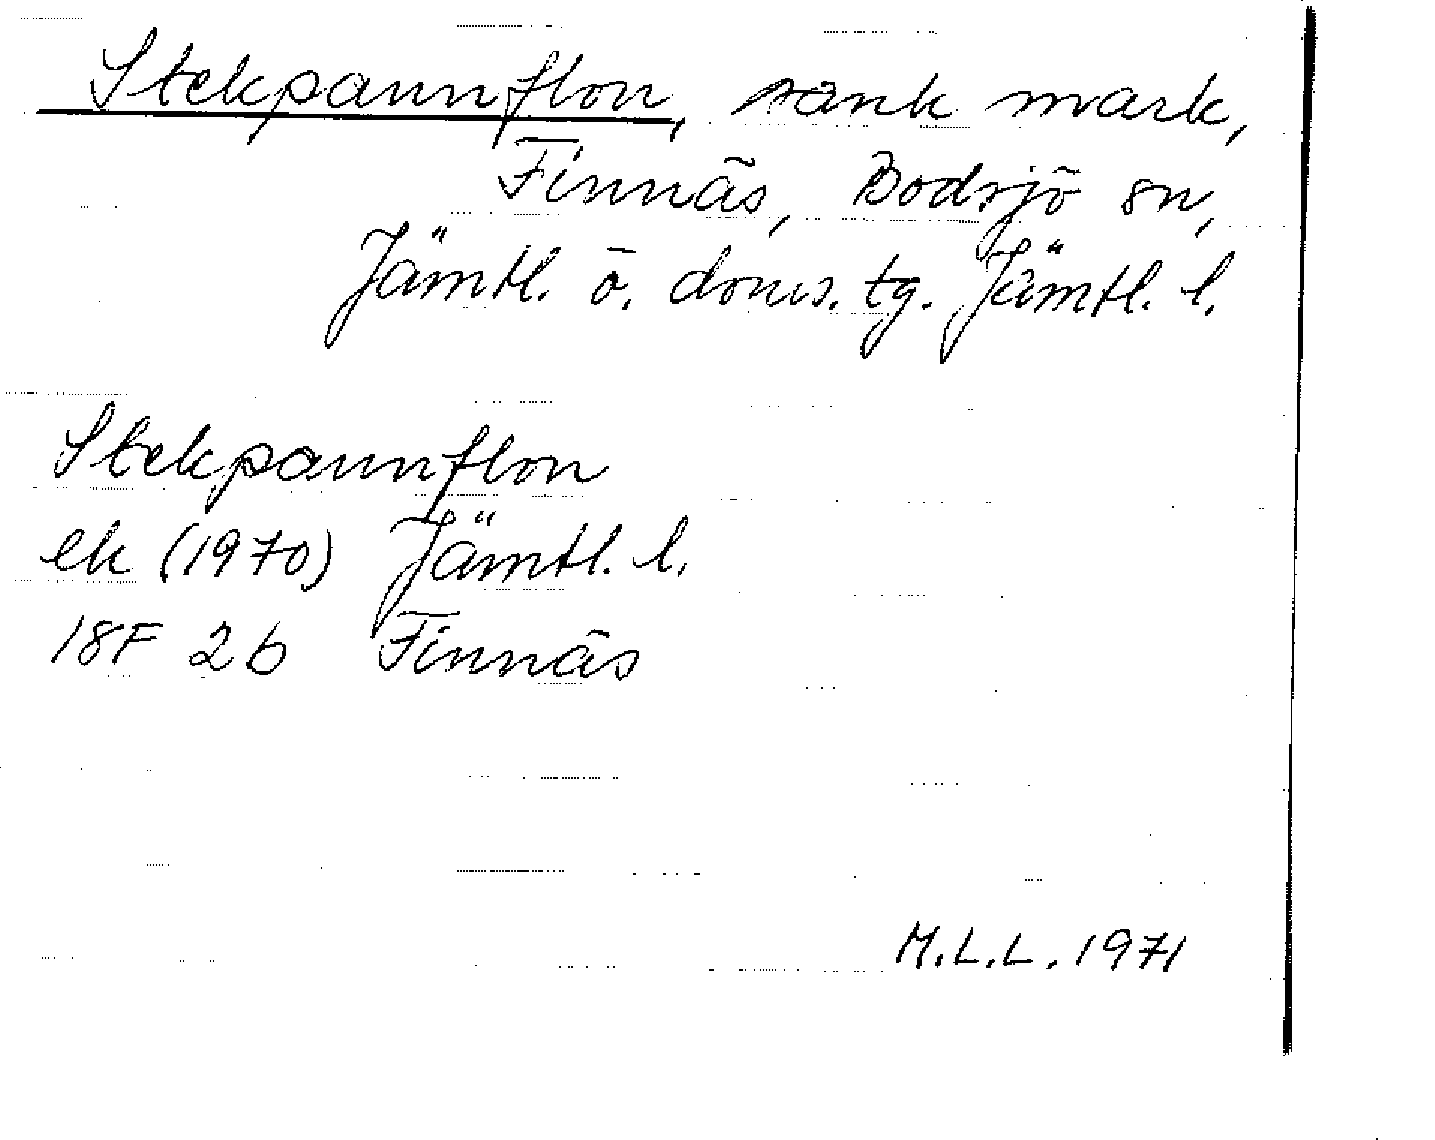 Stekpannflon, sank mark,
Finnäs, Bodsjö sn,
Jämtl. ö. doms. tg. Jämtl. l.
Stekpannflon
ek (1970) Jämtl. l.
18F 2b Finnäs
M.L.L. 1971